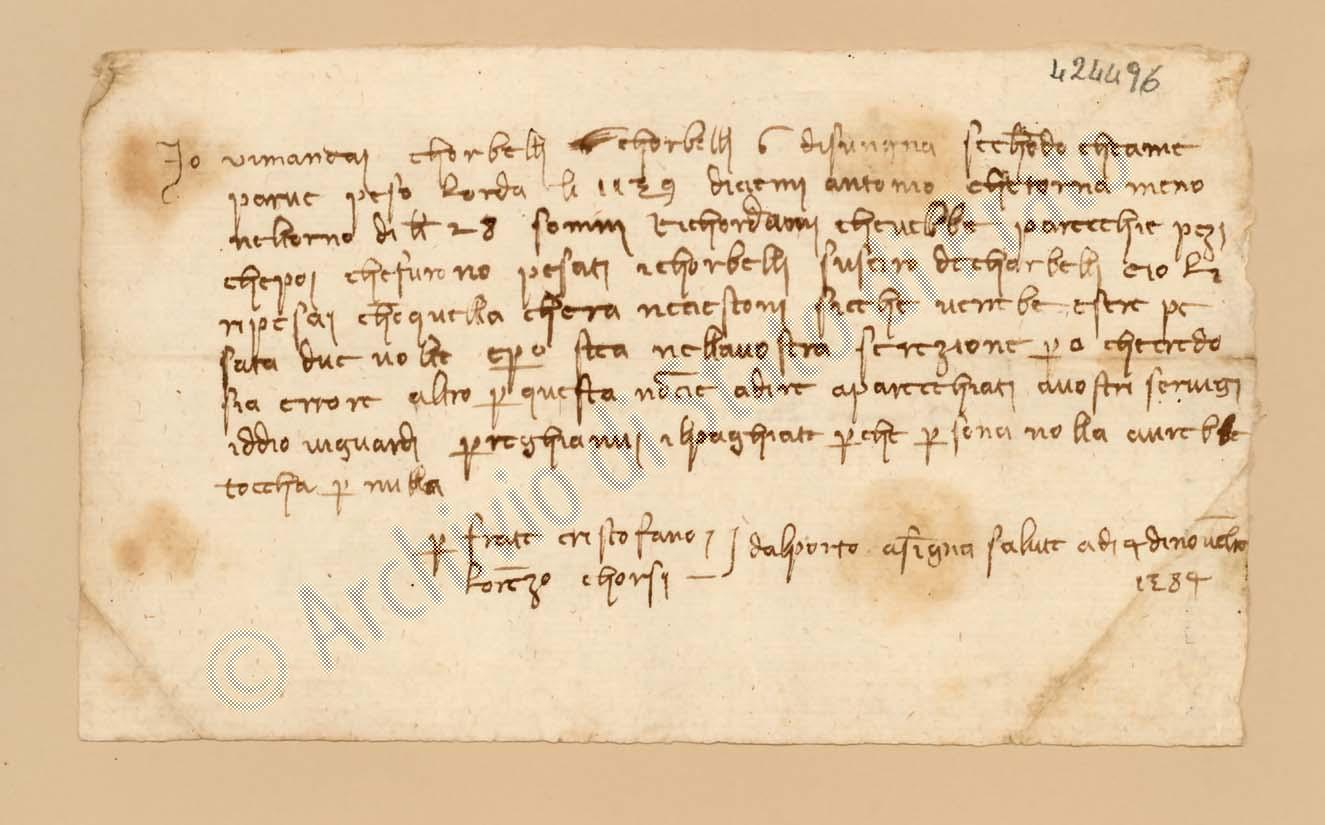 424496
Io vimandai chorbelli chorbelli 6 disungna sechōdo cheame
parve peso lorda lb 1139 diciemi antonio chetorna meno
nelorno di lb 28 sonmi Richordami chevebbe parecchie pezi
chepoi chefurono pesati i chorbelli fuseiro de chorbelli e io li
ripesai chequella chera neciestoni sicche verebe esere pe
sata due volte epo stea nellavostra screzione po checredo
sia errore altro p questa nōcie adire aparecchiati avostri servigi
iddio viguardi preghianvi i lpaghiate pche p sena nolla avrebbe
toccha p nulla
p frate cristofano
lorēzo chorsi
dalporto asingna salute adi 4 dinovēbre
1384
© Archivio di Stato di Prato